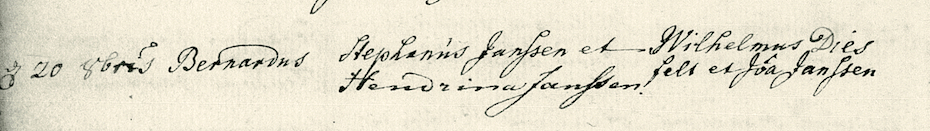 20 8bris Bernardus Stephanus Janssen et Wilhelmus Dies
Hendrina Janssen. felt et Joã Janssen